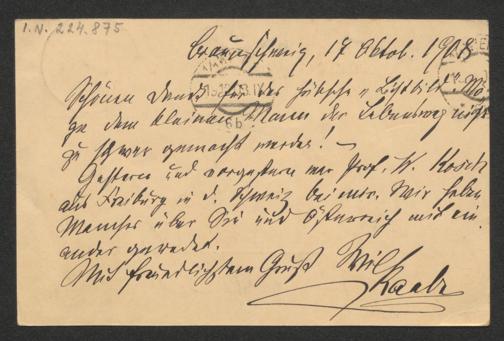 I.N. 224.875
Braunschweig, 17 Oktob. 1908
Schönen Dank für das hübsche „Lichtbild“. Mö-
ge dem kleinen Mann der Lebensweg nicht
zu schwer gemacht werden! –
Gestern und vorgestern war Prof. W. Kosch
aus Freiburg in d. Schweiz bei mir. Wir haben
Manches über Sie und Österreich mit ein-
ander geredet.
Mit freundlichstem Gruß Wil
Raabe